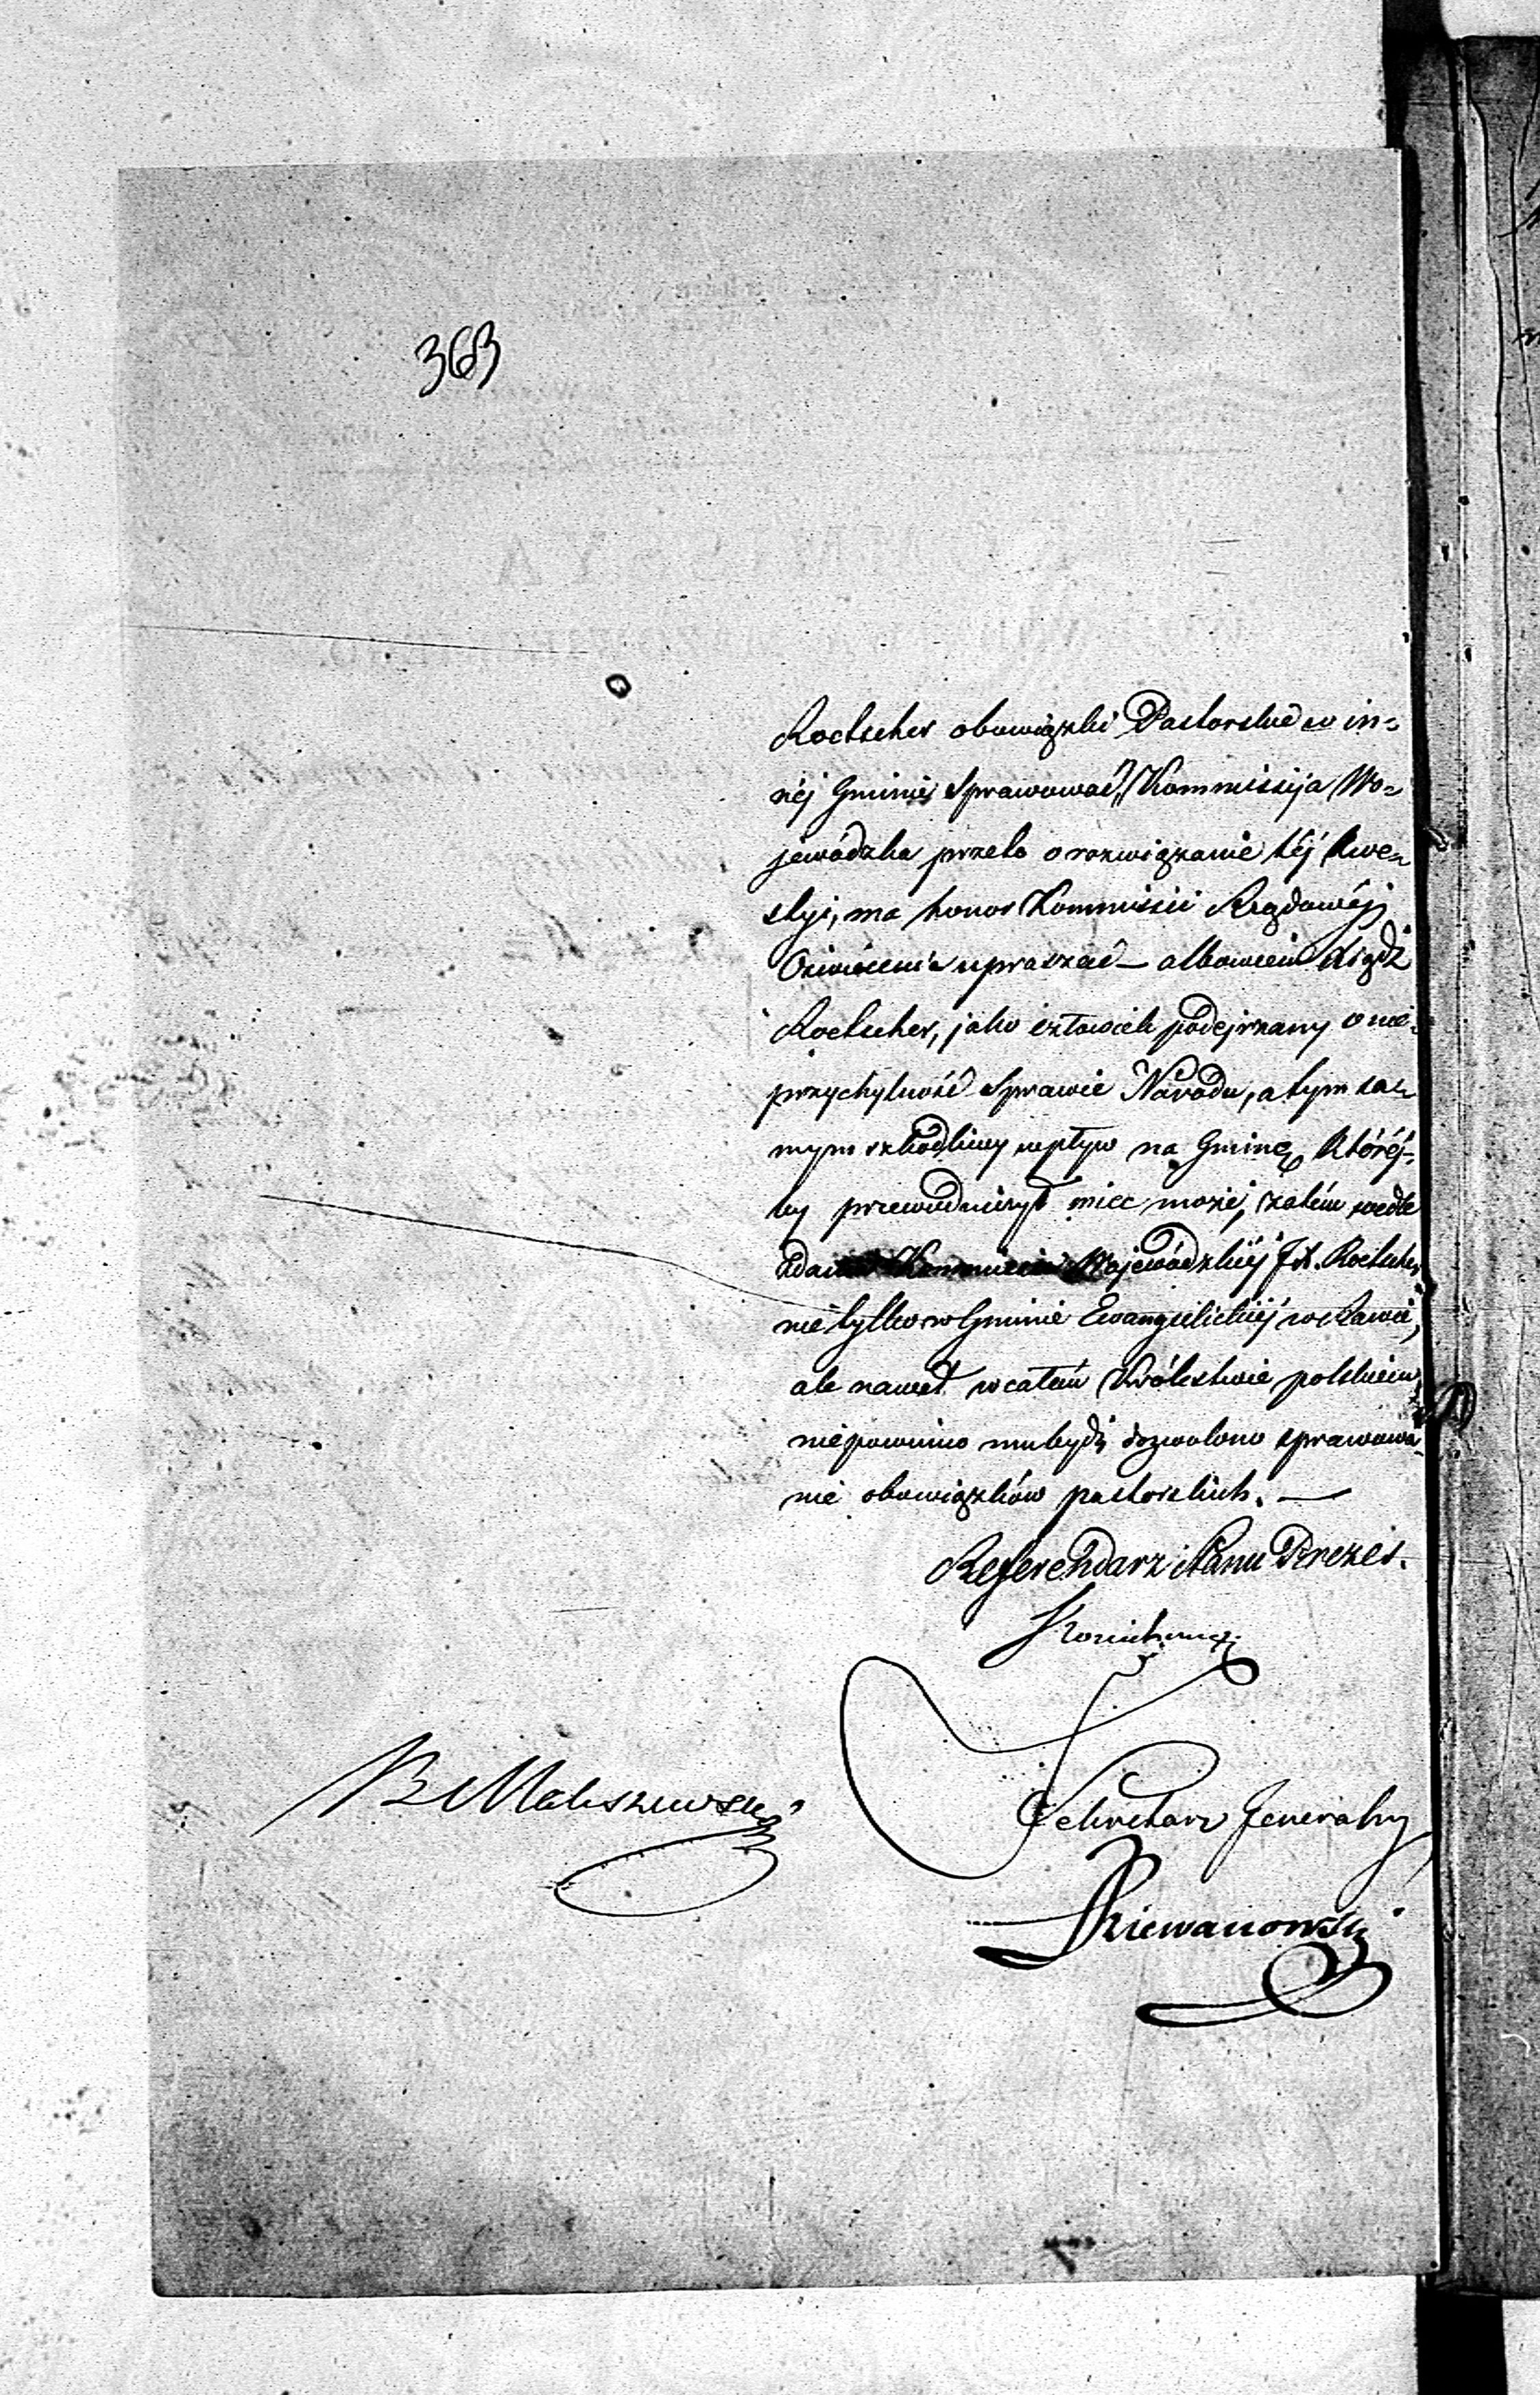 363
Roetscher obowiązki Pastorskie w in-
néj Gminie Sprawować? Kommissyja Wo-
jewódzka przeto o rozwiązanie téj kwe-
styi, ma honor Kommissii Rządowéj
Oświecenia upraszać – albowiem Xiądz
Roetscher, jako człowiek podejrzany o nie-
przychylność Sprawie Narodu, a tym sa-
mym szkodliwy wpływ na Gminę któréj-
by przewodniczył miec może, zatém wedle
zdania Kommissii Wojewódzkiéj JX. Roetscher
nie tylko w Gminie Ewangelickiéj w Rawie,
ale nawet w całém Królestwie polskiém
niepowinno mu bydź dozwolono sprawowa-
nie obowiązków pastorskich. —
Referendarz Stanu Prezes.
Sekretarz Jeneralny
B Maliszewski